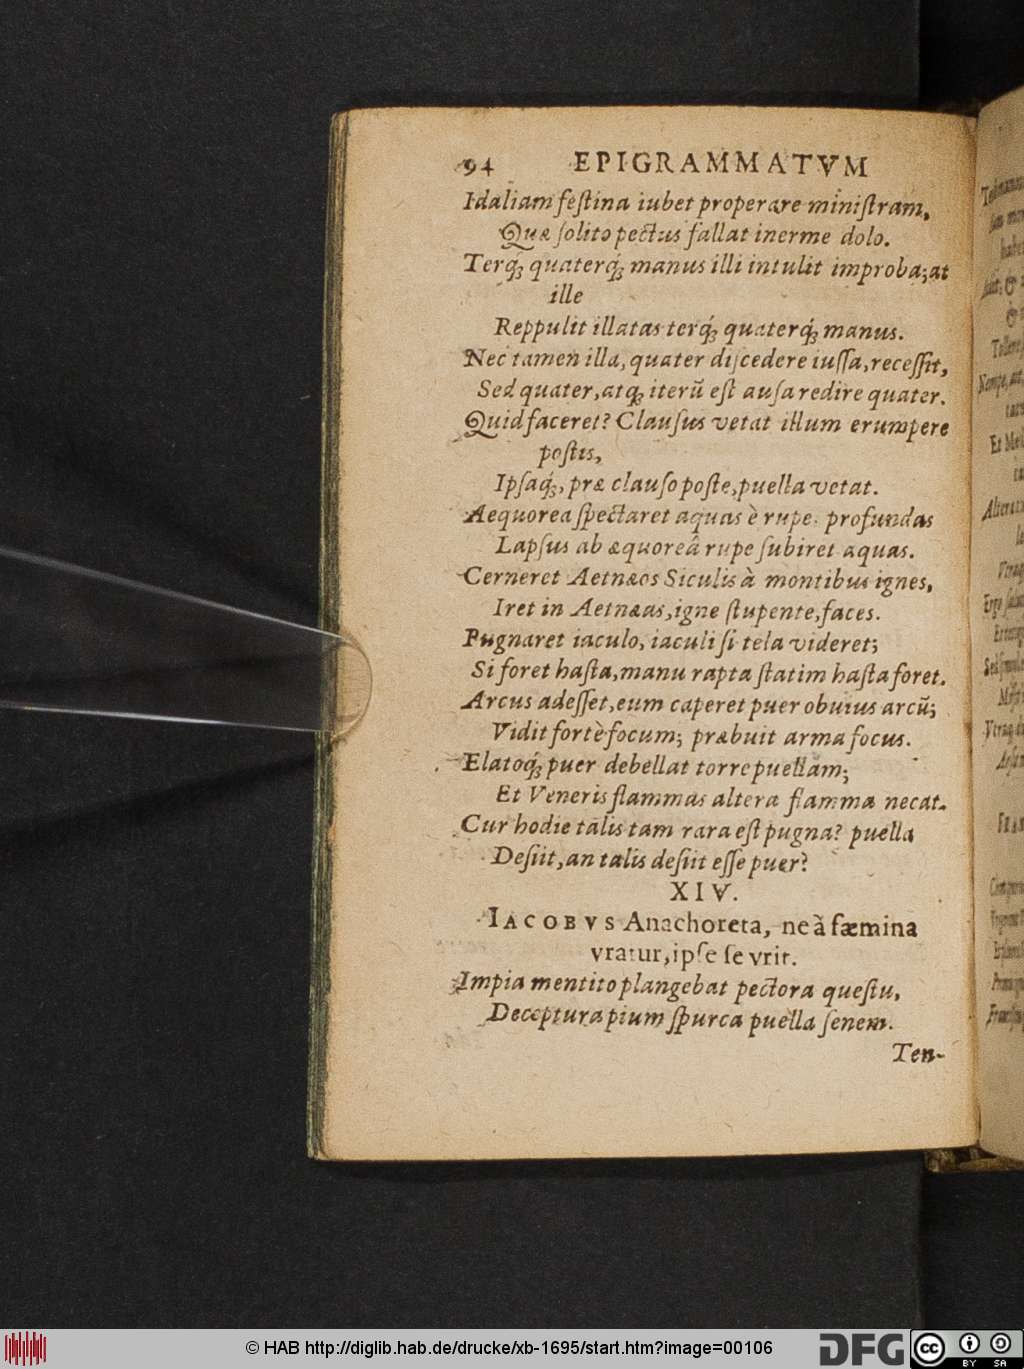 94 EPIGRAMMATVM
Idaliam feſtina iubet properare miniſtram,
Quæ ſolito pectus fallat inerme dolo.
Terq́; quaterq́; manus illi intulit improba; at
ille
Reppulit illatas terq́; quaterq́; manus.
Nec tamen illa, quater diſcedere iuſſa, receſſit,
Sed quater, atq; iterũ eſt auſa redire quater.
Quid faceret? Clauſus vetat illum erumpere
poſtis,
Ipſaq́;, præ clauſo poſte, puella vetat.
Aequorea ſpectaret aquas è rupe: profundas
Lapſus ab æquoreâ rupe ſubiret aquas.
Cerneret Aetnæos Siculis à montibus ignes,
Iret in Aetnæas, igne ſtupente, faces.
Pugnaret iaculo, iaculi ſi tela videret;
Si foret haſta, manu rapta ſtatim haſta foret.
Arcus adeſſet, eum caperet puer obuius arcũ;
Vidit fortè focum; præbuit arma focus.
Elatoq́; puer debellat torre puellam;
Et Veneris flammas altera flamma necat.
Cur hodie talis tam rara eſt pugna? puella
Deſiit, an talis deſiit eſſe puer?
XIV.
IACOBVS Anachoreta, ne à fæmina
vratur, ipſe ſe vrit.
Impia mentito plangebat pectora queſtu,
Deceptura pium ſpurca puella ſenem.
Ten-
© HAB http://diglib.hab.de/drucke/xb-1695/start.htm?image=00106
DFG
cc
BY SA